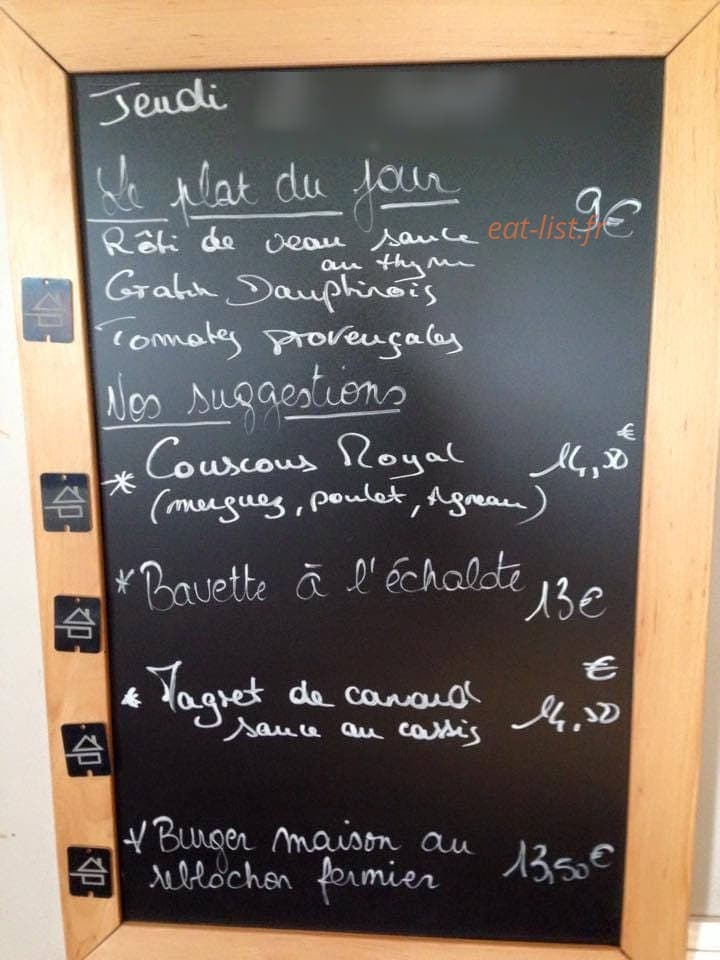 Jeudi
Le plat du jour 9€
eat-list.fr
Rôti de veau sauce
au thym
Gratin Dauphinois
Tomates provençales
Nos suggestions
* Couscous Royal 14,50 €
(merguez, poulet, Agneau)
* Bavette à l'échalote 13€
* Magret de canard
sauce au cassis 14,50 €
* Burger maison au
reblochon fermier 13,50€